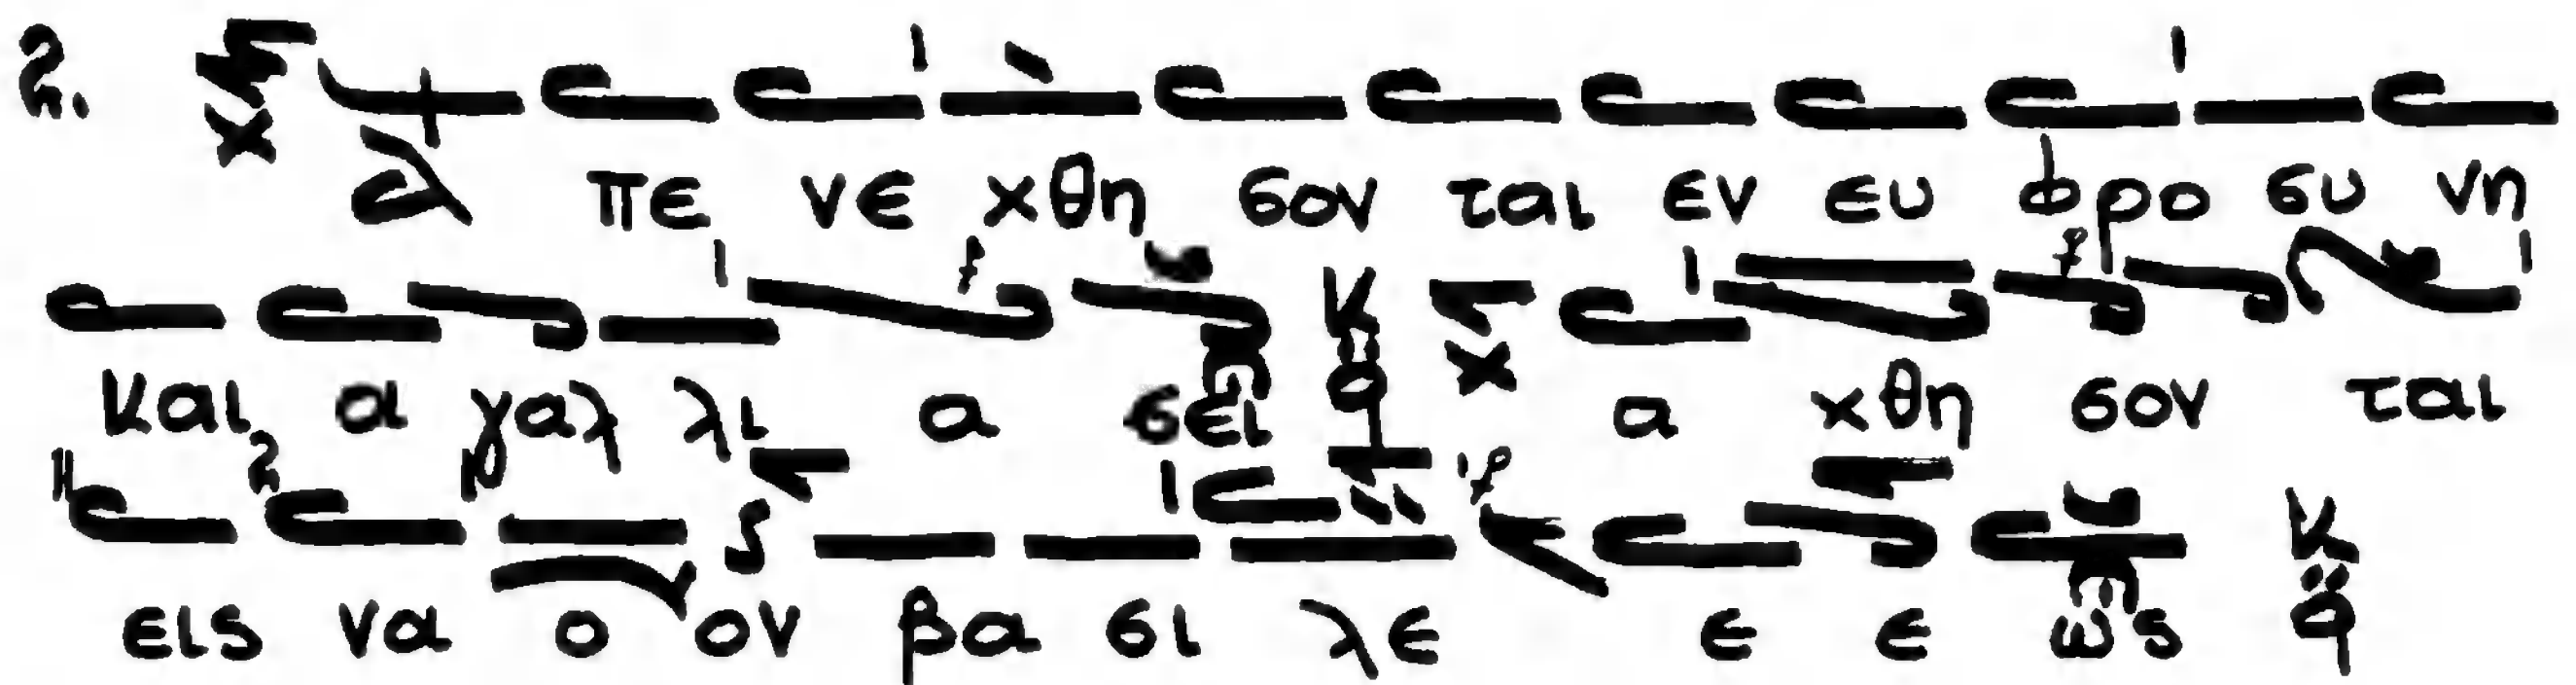 2. Α πε νε χθη σον ται εν ευ φρο συ νη
και α γαλ λι α σει α χθη σον ται
εις να ο ον βα σι λε ε ε ως